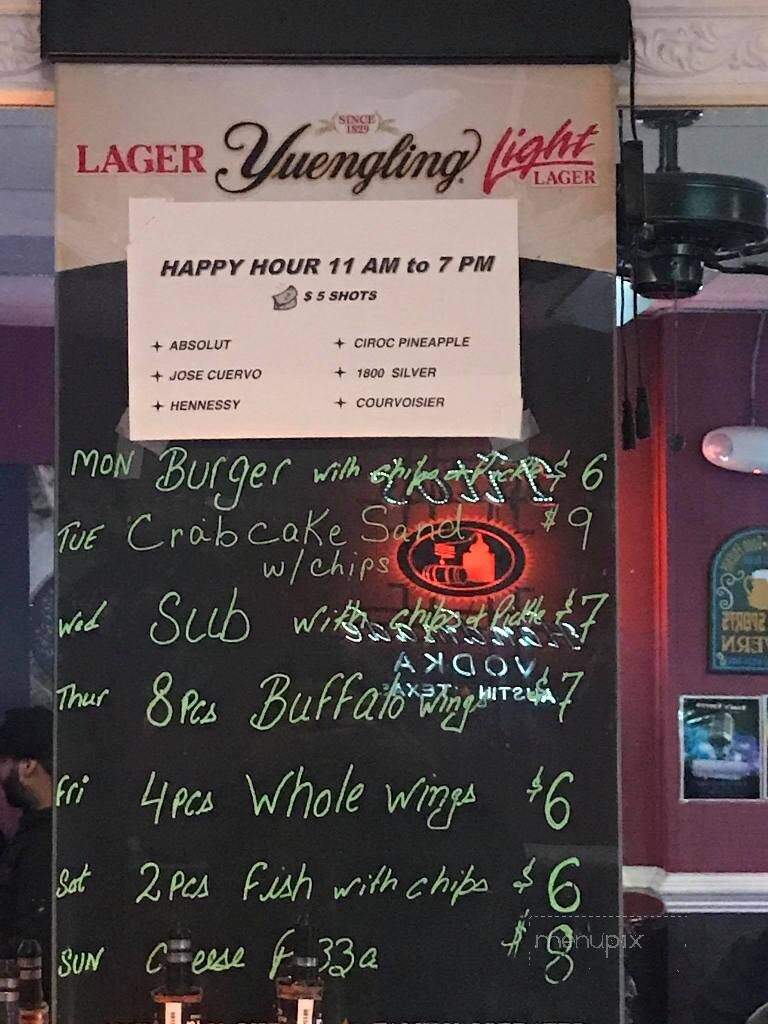 SINCE
1829
LAGER Yuengling Light
LAGER
HAPPY HOUR 11 AM to 7 PM
$ 5 SHOTS
ABSOLUT CIROC PINEAPPLE
JOSE CUERVO 1800 SILVER
HENNESSY COURVOISIER
MON Burger with chips & Pickle $ 6
TUE Crabcake Sand $9
w/chips
Wed Sub with chips & Pickle $7
VODKA
AUSTIN TEXAS
Thur 8Pcs Buffalo wings $7
Fri 4pcs Whole wings $6
Sat 2Pcs Fish with chips $6
menupix
SUN $8